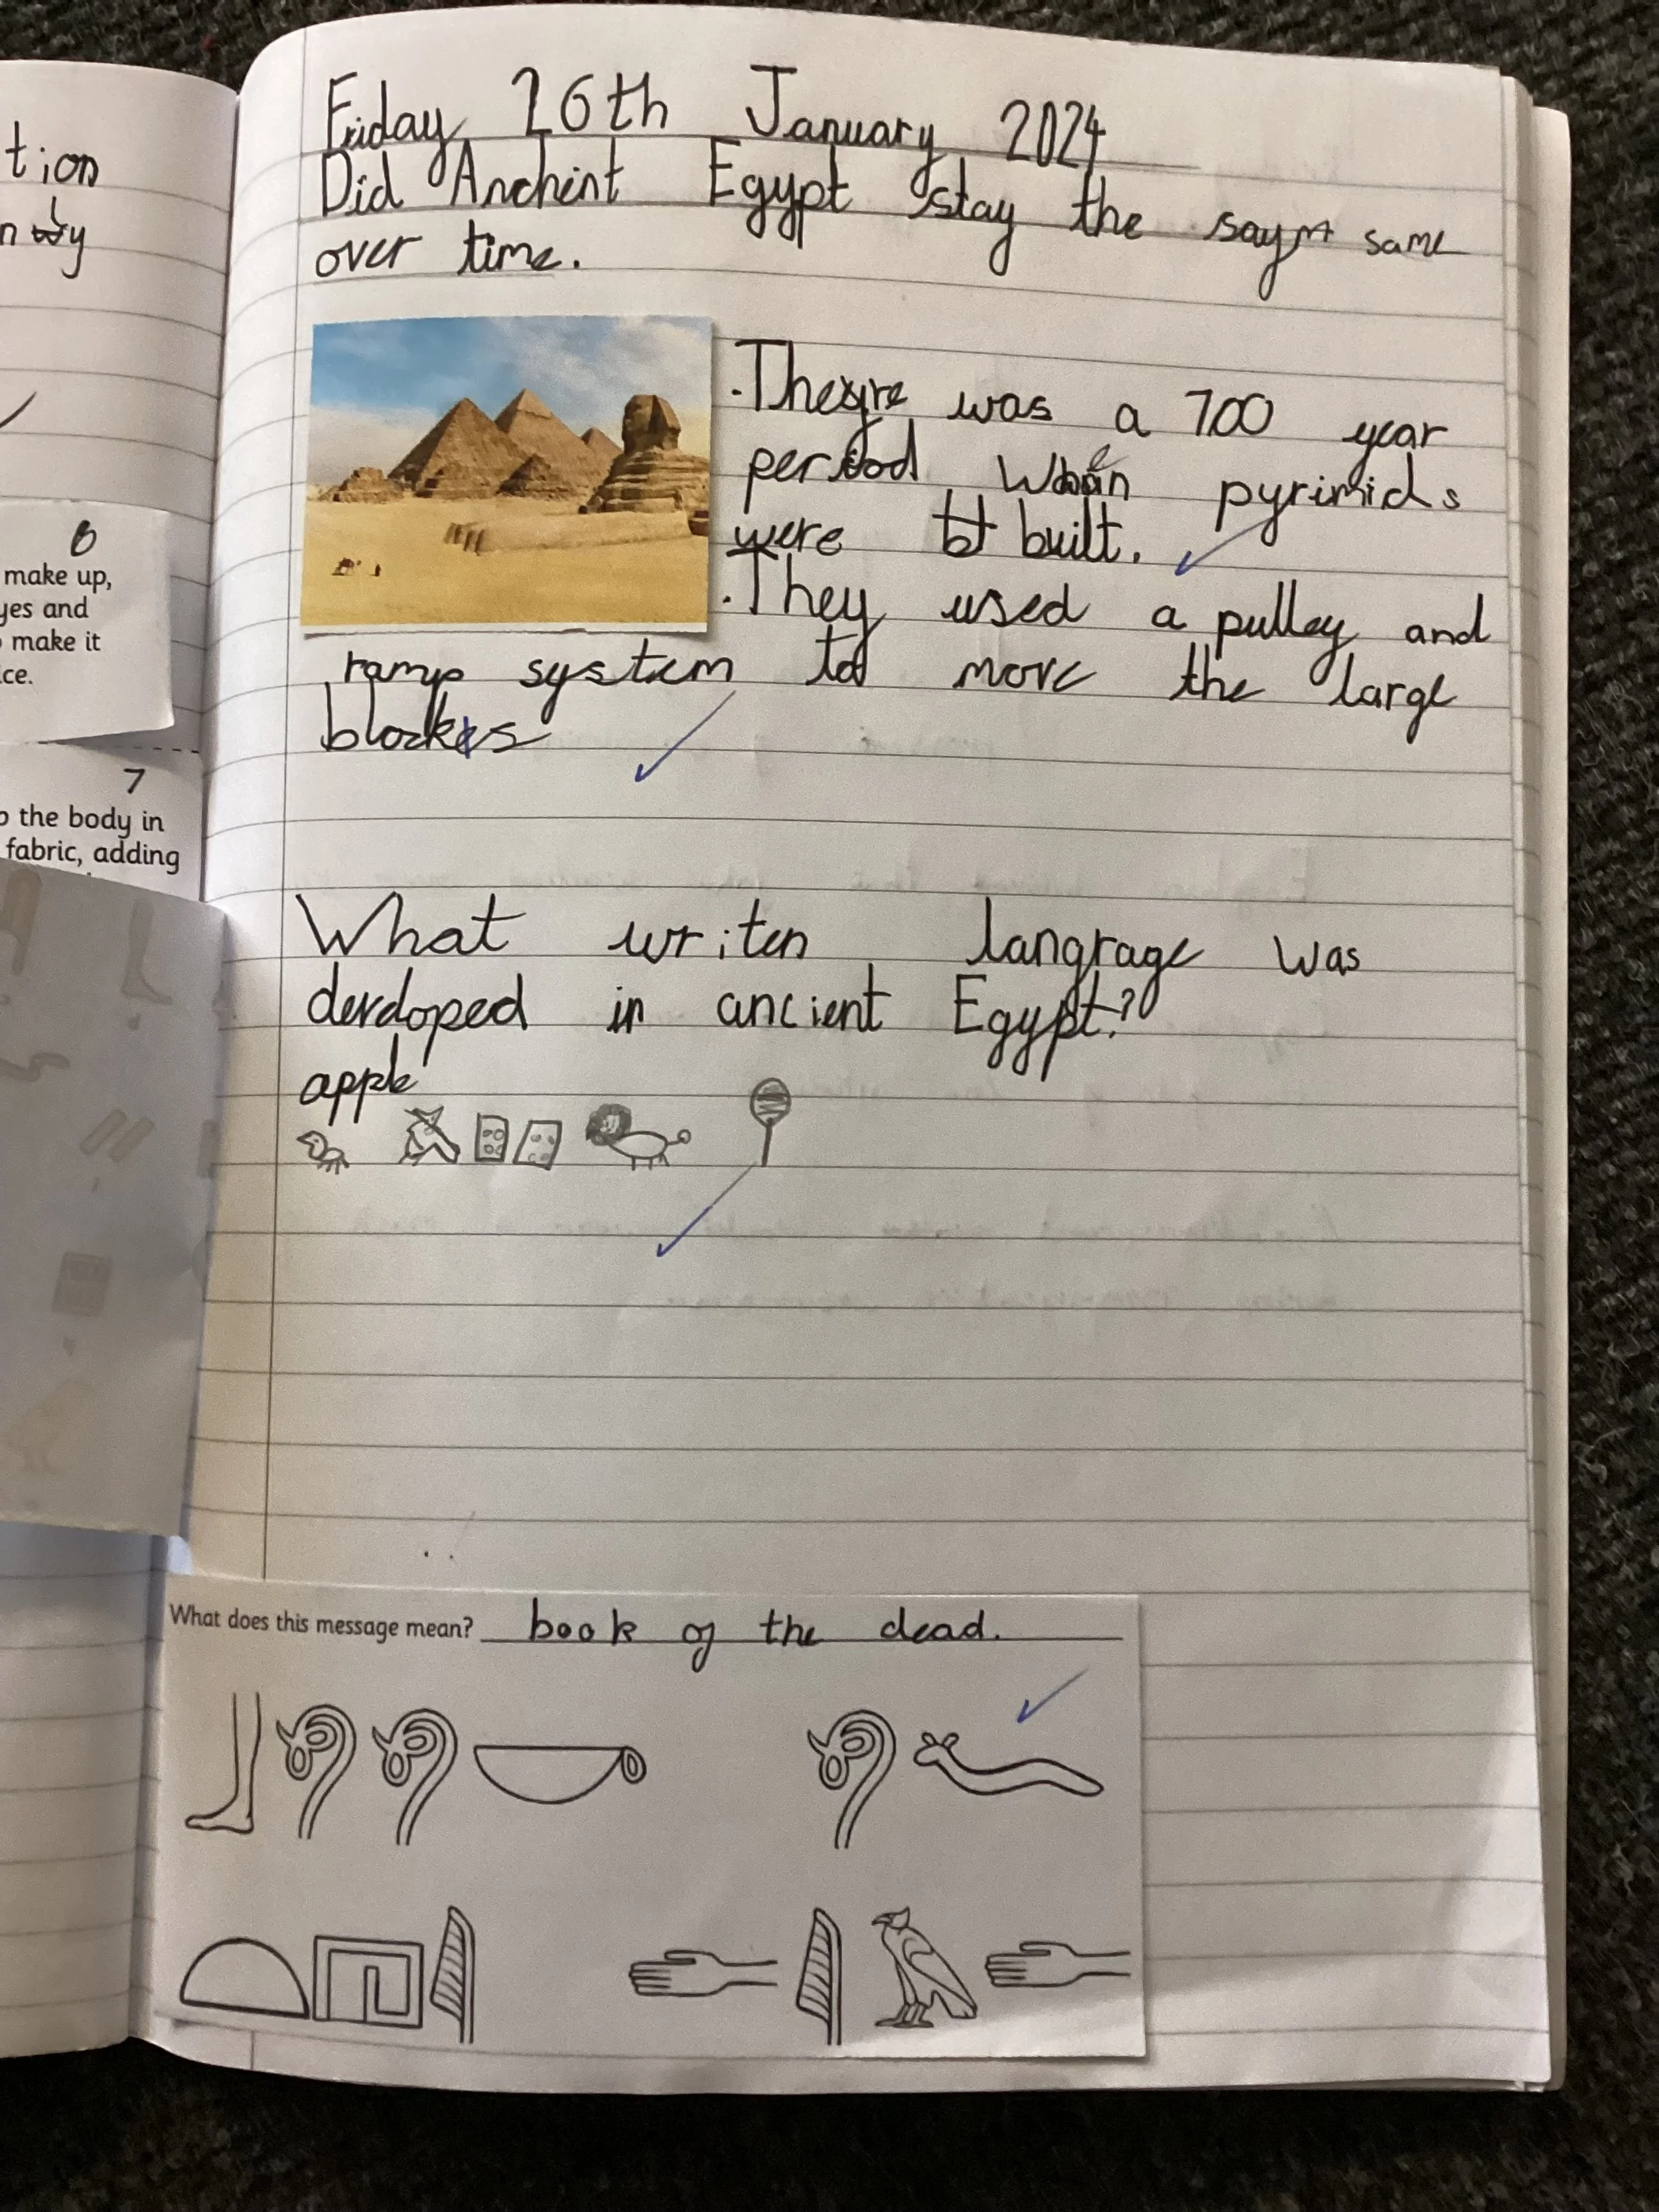 tion
n by
6
make up,
yes and
make it
ce.
7
o the body in
fabric, adding
Friday 26th January 2024
Did Anchint Egypt stay the saym same
over time.
.There was a 700 year
period when pyrimids
were bt built.
.They used a pulley and
ramp system to move the large
blocks
What writen langrage was
derdoped in ancient Egypt?
apple
What does this message mean? book of the dead.